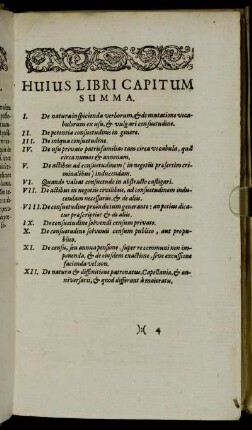 HUIUS LIBRI CAPITUM
SUMMA.
I. De natura inspicienda verborum, & de mutatione voca-
bulorum ex usu, & vulgari consuetudine.
II. De potentia consuetudinis in genere.
III. De iniqua consuetudine.
IV. De usu privato patrisfamilias tam circa vocabula, quã
circa numos & annonam.
V. De actibus ad consuetudinem (in negotiis præsertim cri-
minalibus) inducendam.
VI. Quando valeat consuetudo in abstracto castigari.
VII. De actibus in negotiis civilibus, ad consuetudinem indu-
cendam necessariis, & de aliis.
VIII. De consuetudine proindivisum generante: an potius dica-
tur præscriptio & de aliis.
IX. De consuetudine solvendi censum privato.
X. De consuetudine solvendi censum publico, aut propu-
blico.
XI. De censu, seu annua pensione, super re communi non im-
ponenda, & de ejusdem exactione, sive excussione
facienda vel non.
XII. De natura & diffinitione patronatus, Capellaniæ, & an-
niversarii, & quod differant à maioratu,
):( 4